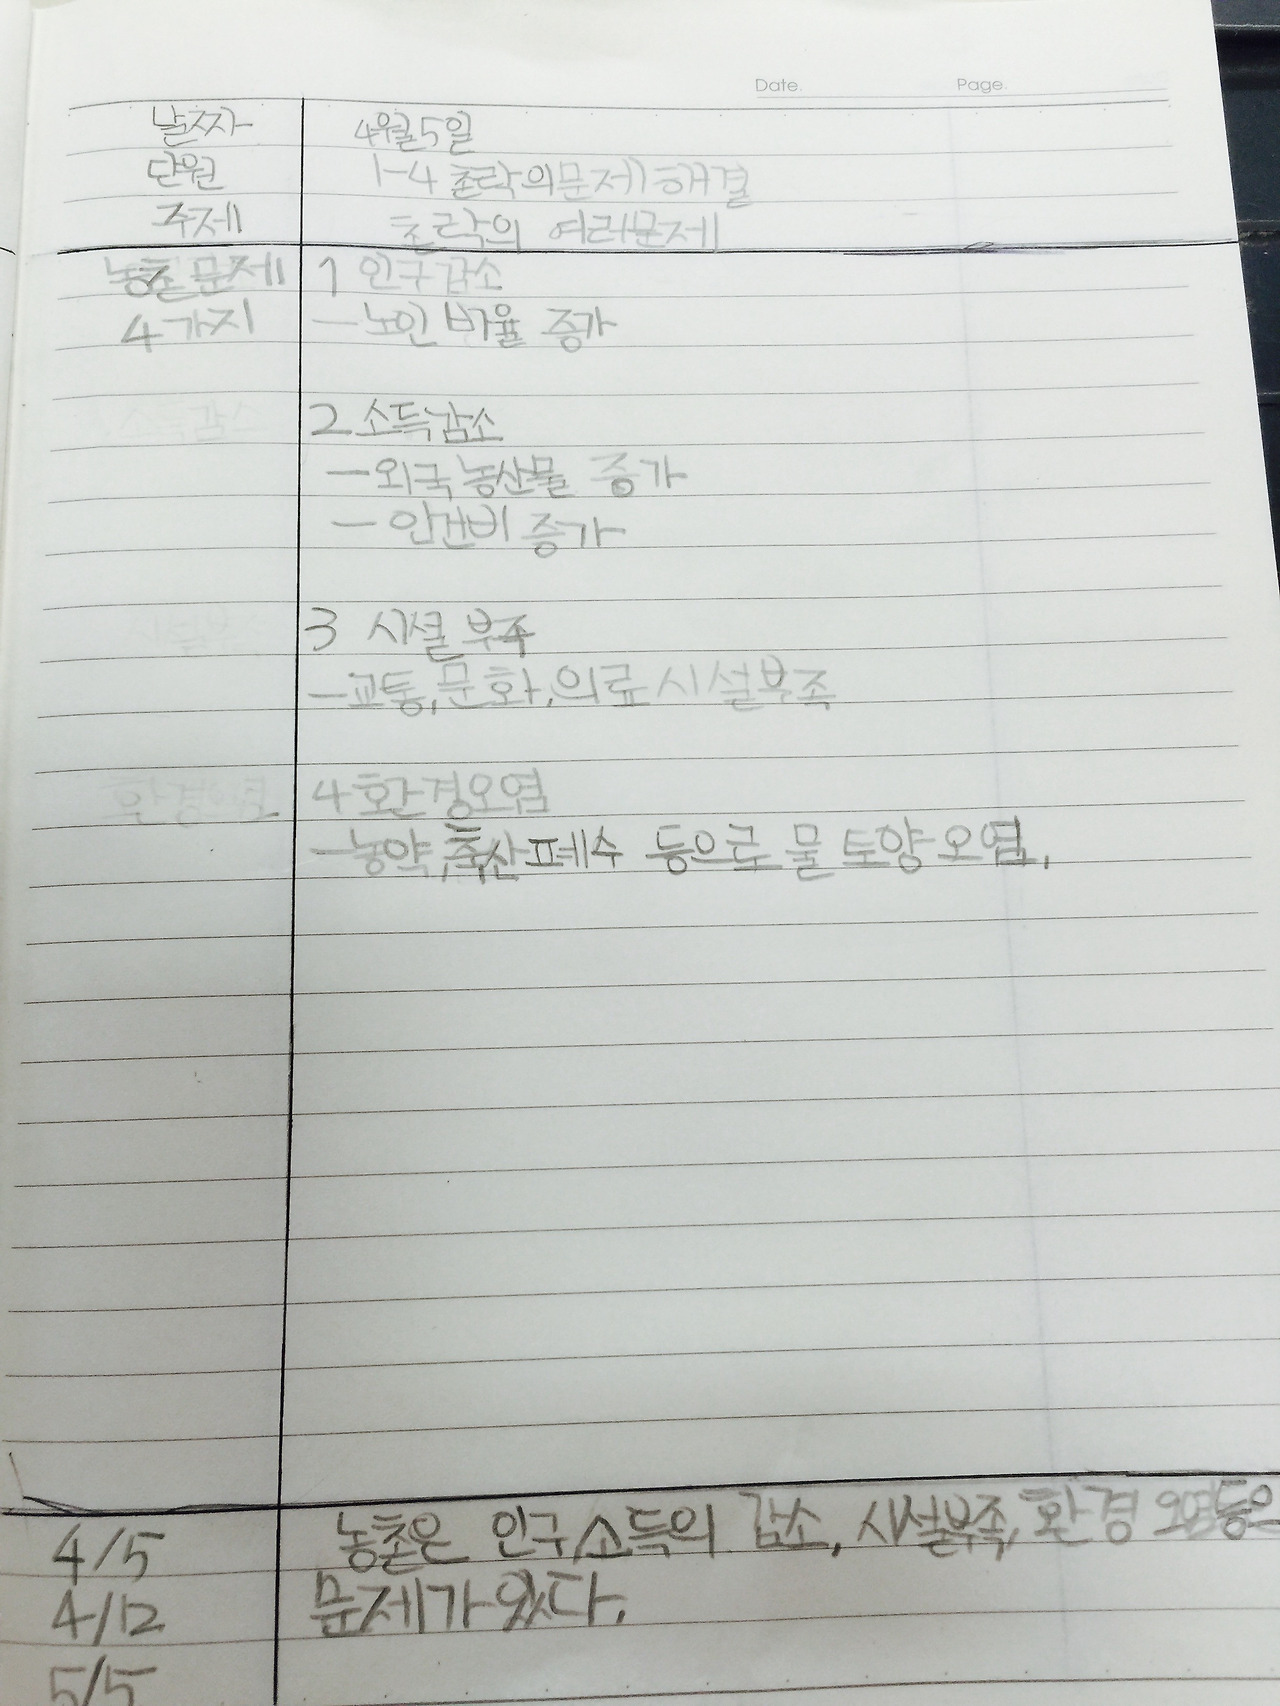 Date. Page.
날짜 4월5일
단원 1-4 촌락의문제해결
주제 촌락의 여러문제
농촌 문제 1 인구감소
4가지 -노인 비율 증가
소득감소 2 소득감소
-외국 농산물 증가
- 인건비 증가
시설부 3 시설 부족
-교통,문화,의료시설부족
환경오염 4 환경오염
-농약,축산폐수 등으로 물 토양오염.
4/5 농촌은 인구,소득의 감소, 시설부족, 환경 오염등으
4/12 문제가 있다.
5/5